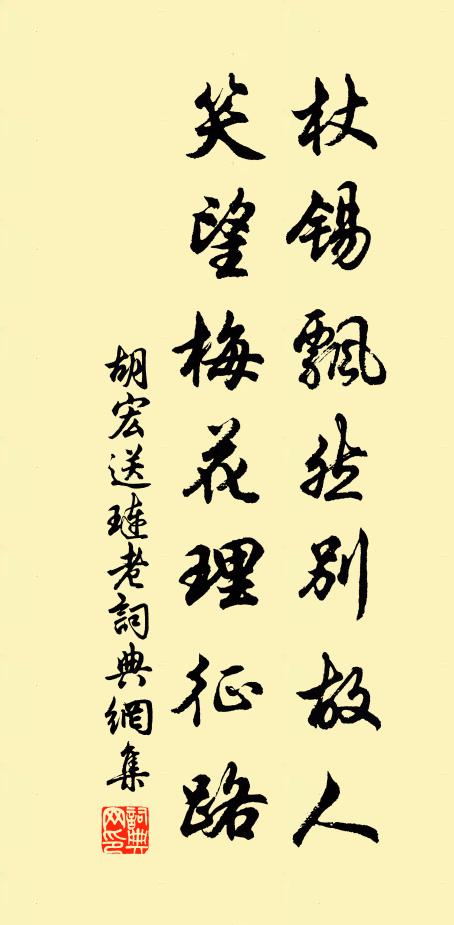 杖锡飘然别故人
笑望梅花理征路
胡宏送璉老詞典網集
詞典网印